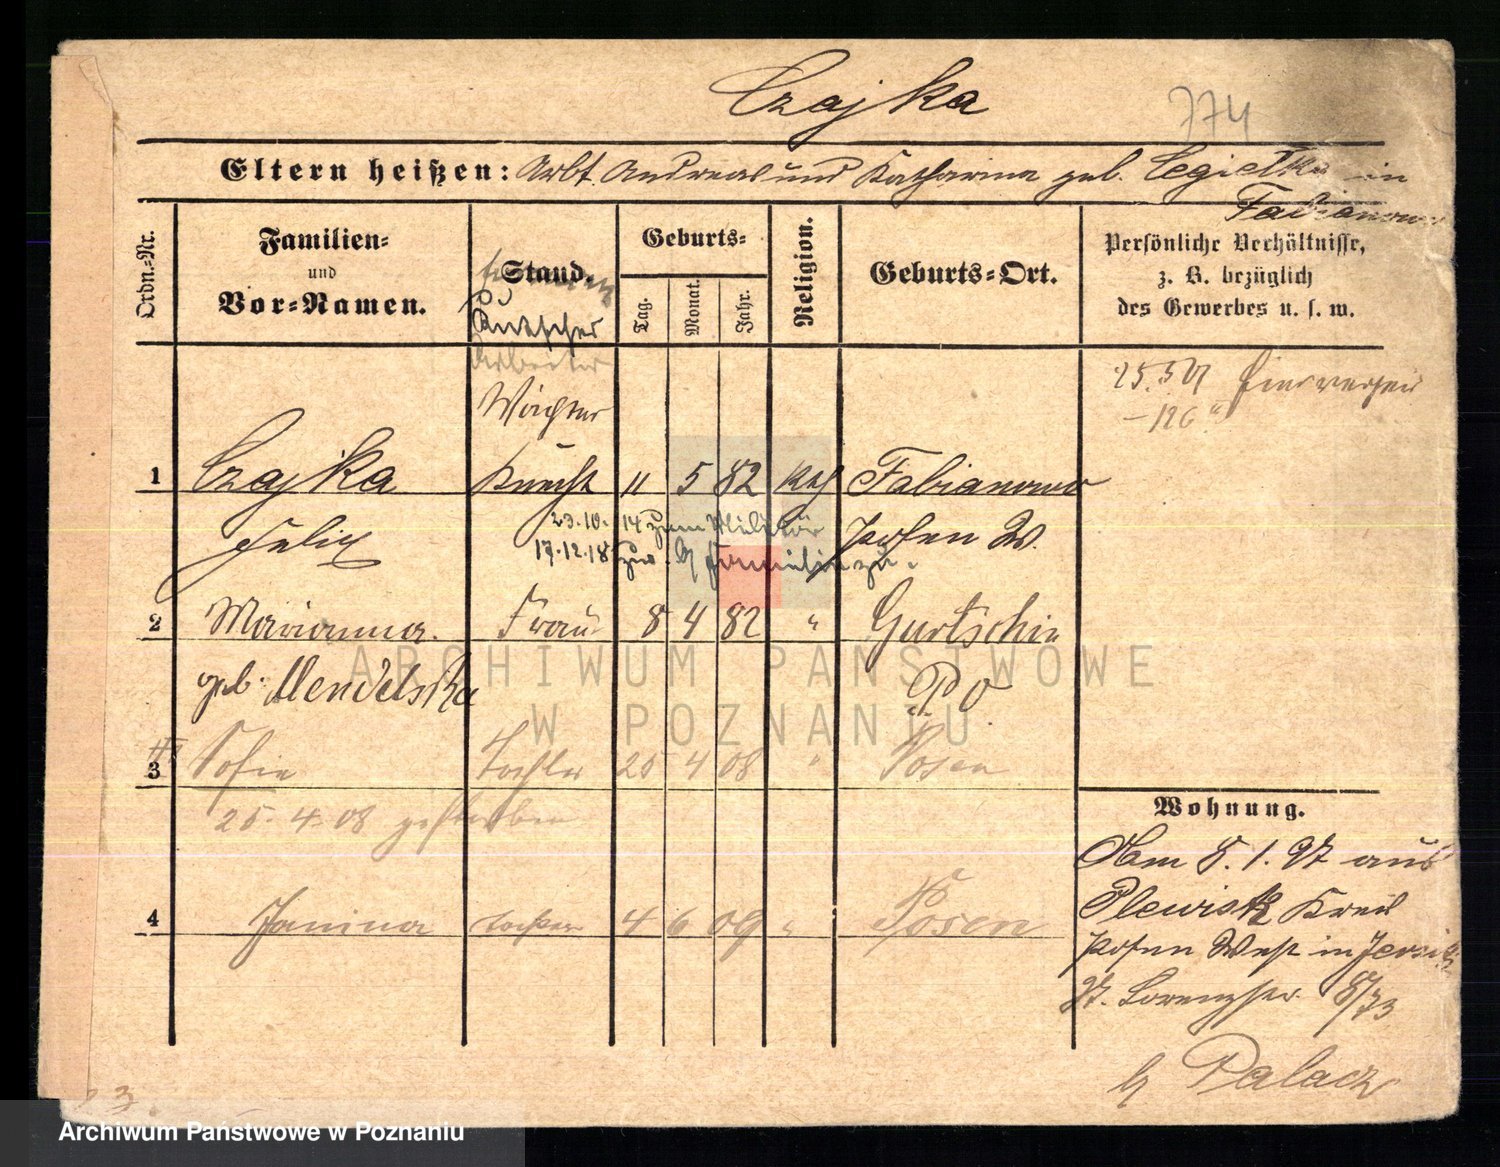 Czajka
774
Eltern heißen: Arbt. Andreas und Katharina geb. Cegielka in
Fabianowo
Ordn.-Nr.
Familien-
und
Vor-Namen.
Stand.
Kutscher
Arbeiter
Wächter
Geburts-
Tag.
Monat.
Jahr.
Religion.
Geburts-Ort.
Persönliche Verhältnisse,
z. B. bezüglich
des Gewerbes u. s. w.
25.5.07
1 Czajka Knecht 11 5 82 kth Fabianowo
Felix Posen W.
23.10.14 zum Militär
17.12.18 zur Familie zu.
2 Marianna. Frau 8 4 82 " Gurtschin
geb. Mendelska P O
3 Sofie Tochter 25 4 08 " Posen
25.4.08 gestorben
4 Janina Tochter 4 6 09 " Posen
Wohnung.
Kam 8.1.97 aus
Plewisk Kreis
Posen West in
St. Lorenzstr. 8/73
b/ Palacz
ARCHIWUM PAŃSTWOWE
W POZNANIU
Archiwum Państwowe w Poznaniu